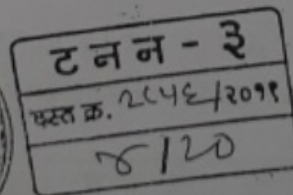 ट न न - ३
दस्त क्र. २८५६/२०१९
४/२०